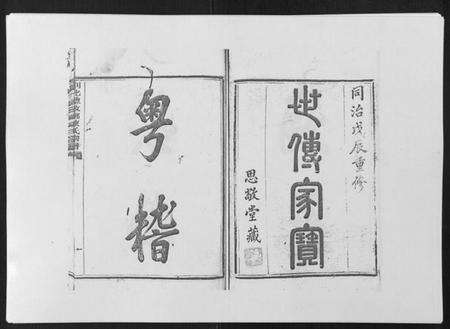 同治戊辰重修
世傳家寶
思敬堂藏
粵稽